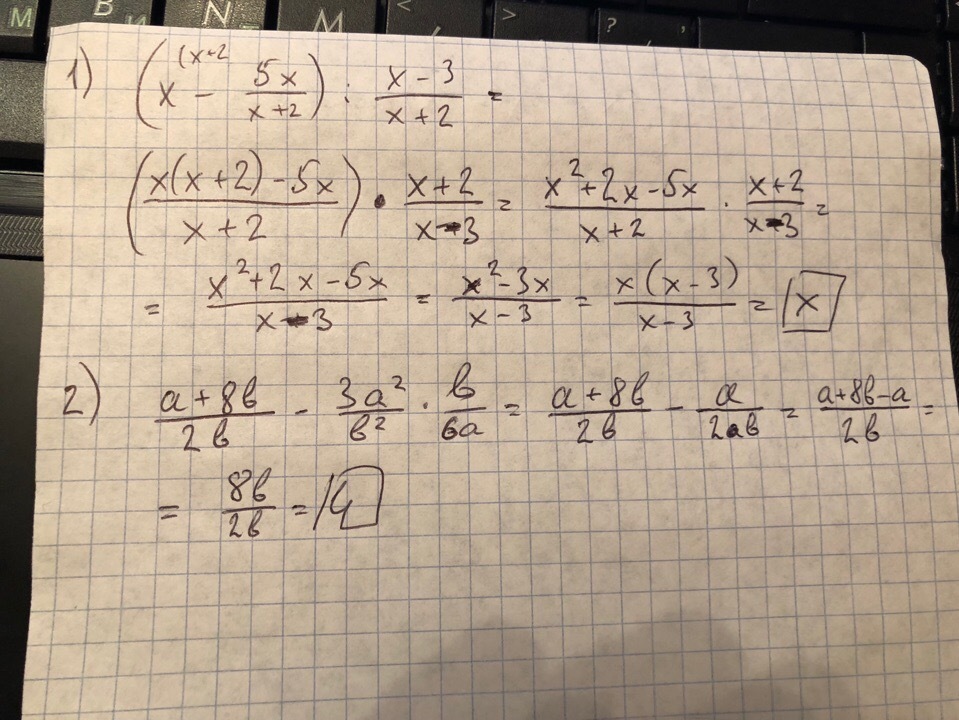 М В N M < > ? /
1) (x^{(x+2} - \frac{5x}{x+2}) : \frac{x-3}{x+2} =
(\frac{x(x+2)-5x}{x+2}) · \frac{x+2}{x-3} = \frac{x^2+2x-5x}{x+2} · \frac{x+2}{x-3} =
= \frac{x^2+2x-5x}{x-3} = \frac{x^2-3x}{x-3} = \frac{x(x-3)}{x-3} = x
2) \frac{a+8b}{2b} - \frac{3a^2}{b^2} · \frac{b}{6a} = \frac{a+8b}{2b} - \frac{a}{2b} = \frac{a+8b-a}{2b} =
= \frac{8b}{2b} = 4